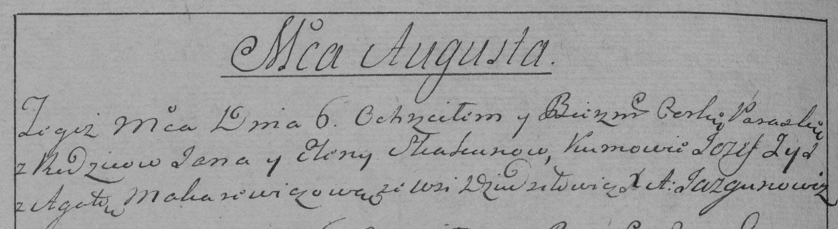 Mca Augusta.
Tegoż Mca Dnia 6. Ochrzciłem y Bierzm Corkę Paraskę
z Rodzicow Jana y Eleny Skakunow, Kumowie Jozef Zyś
z Agatą Makarewiczową ze wsi Dziedziłowicz X A: Jazgunowicz